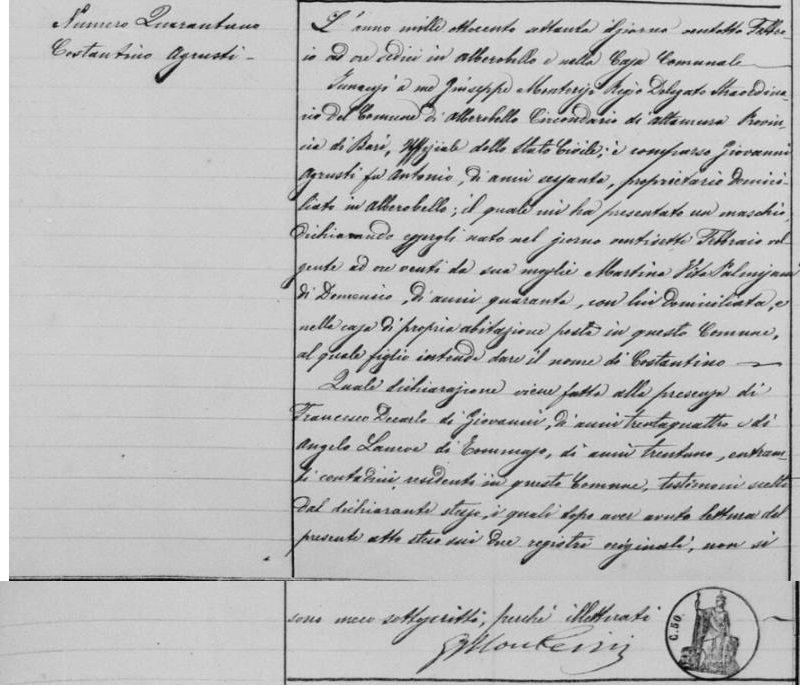 Numero Quarantuno
Costantino Agrusti -
L'anno mille ottocento ottanta il giorno ventotto Febbra-
io ad ore sedici in Alberobello e nella Casa Comunale
Innanzi a me Giuseppe Regio Delegato Straordina-
rio del Comune di Alberobello Circondario di Altamura Provin-
cia di Bari, Uffiziale dello Stato Civile; è comparso Giovanni
Agrusti fu Antonio, di anni sessanta, proprietario domici-
liato in Alberobello; il quale mi ha presentato un maschio,
dichiarando essergli nato nel giorno ventisette Febbraio vol-
gente ad ore venti da sua moglie Martina Vita Palmisani
di Domenico, di anni quaranta, con lui domiciliata, e
nella casa di propria abitazione posta in questo Comune,
al quale figlio intende dare il nome di Costantino
Quale dichiarazione viene fatta alla presenza di
Francesco Decarlo di Giovanni, di anni trentaquattro e di
Angelo di Tommaso, di anni trentuno, entram-
bi contadini, residenti in questo Comune, testimoni scelti
dal dichiarante stesso, i quali dopo aver avuto lettura del
presente atto steso sui due registri originali, non si
sono meco sottoscritti, perchè illetterati
C. 50.